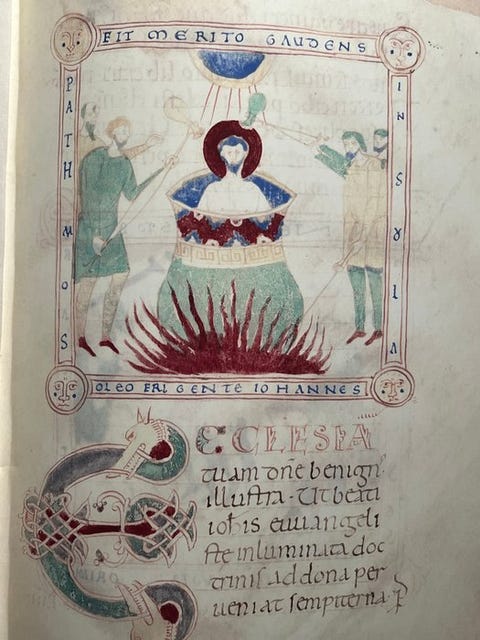 FIT MERITO GAUDENS
PATHMOS
INSULA
OLEO FRIGENTE IOHANNES
ECCLESIĀ
tuam dñe benign'.
illustra. Ut beati
ioħis euuangeli
ste inluminata doc
trinis ad dona per
ueniat sempiterna.